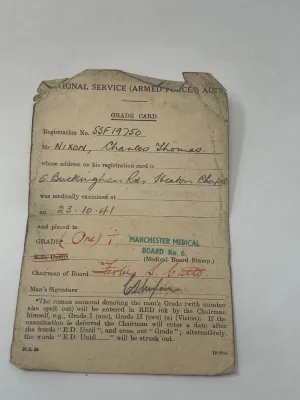 NATIONAL SERVICE (ARMED FORCES) ACTS
GRADE CARD
Registration No. SSF19750
Mr. NIXON, Charles Thomas
whose address on his registration card is
6 Buckingham Rd, Heaton Chapel
was medically examined at
on 23.10.41
and placed in
GRADE (One) I
MANCHESTER MEDICAL
BOARD No. 6.
E.D. Until
(Medical Board Stamp.)
Chairman of Board
Man's Signature
*The roman numeral denoting the man's Grade (with number
also spelt out) will be entered in RED ink by the Chairman
himself, e.g., Grade I (one), Grade II (two) (a) (Vision). If the
examination is deferred the Chairman will enter a date after
the words "E.D. Until", and cross out "Grade"; alternatively,
the words "E.D. Until" will be struck out.